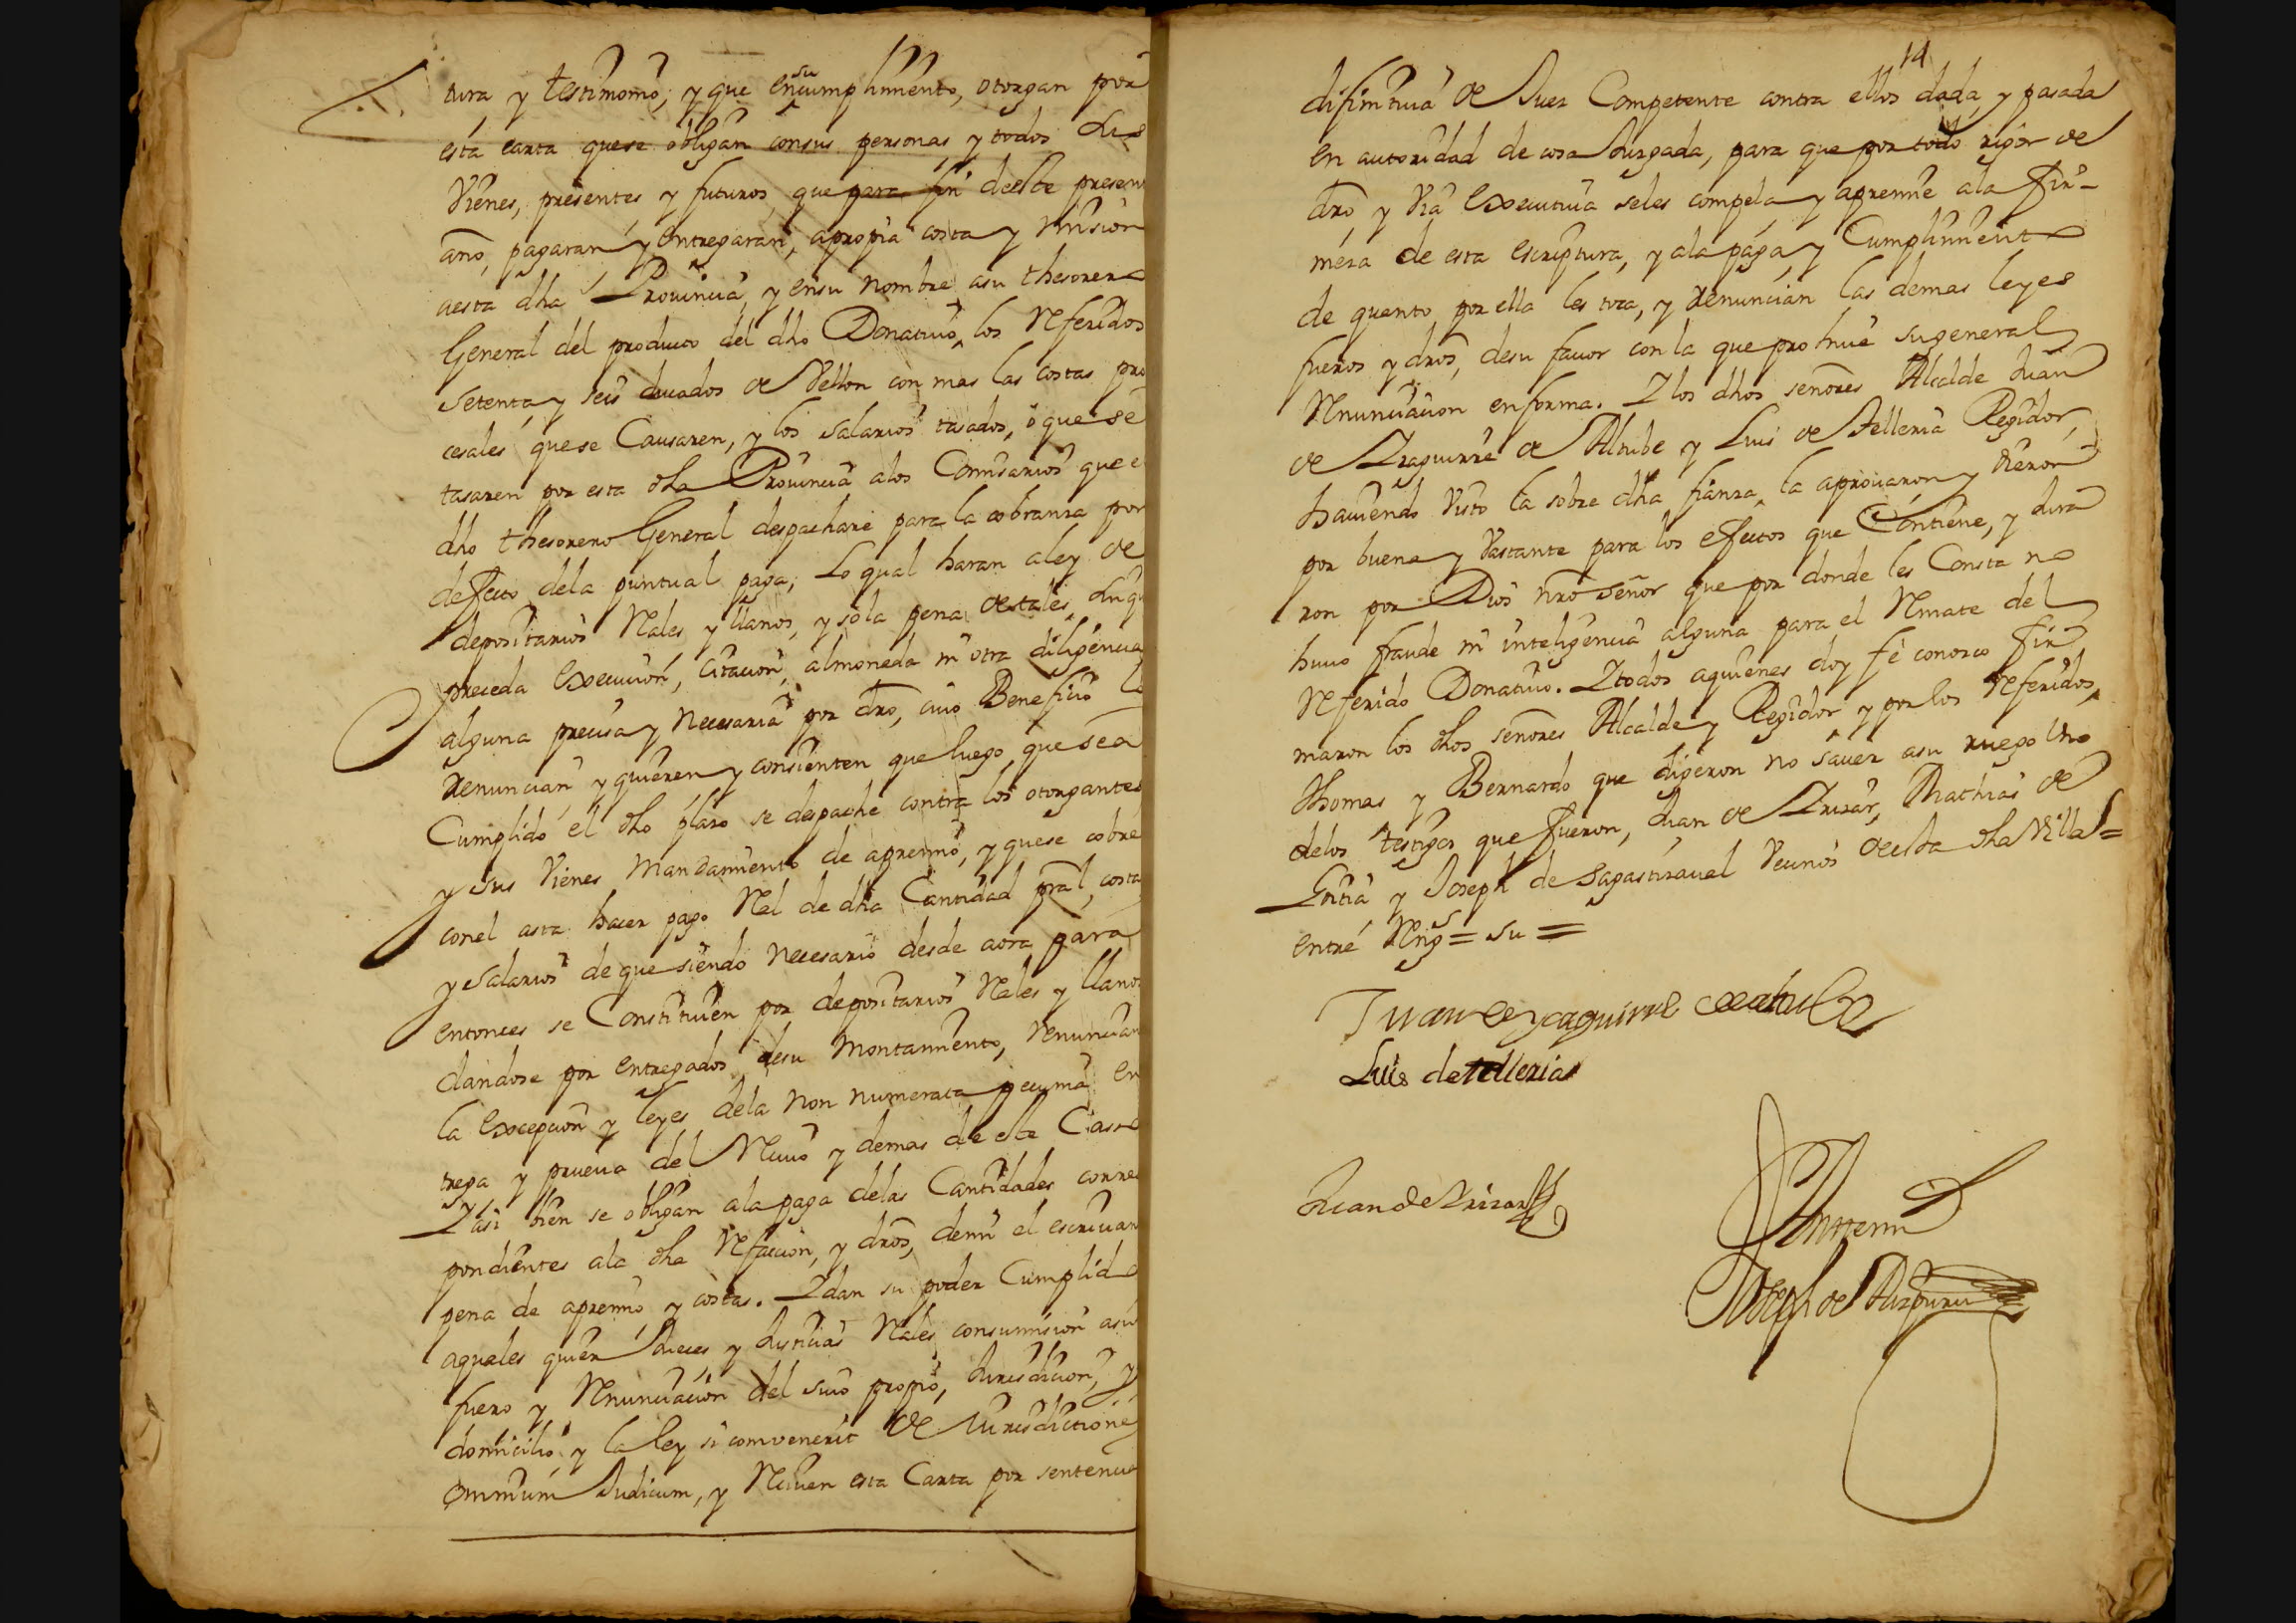 tura y testimonio, y que en su cumplimiento, otorgan por
esta carta que se obligan con sus personas y todos sus
Vienes, presentes y futuros, que para fin de este presen
año, pagaran y entregaran, a propia costa y mision
a esta dha Provincia, y en su nombre a su thesorero
General del producto del dho Donativo, los referidos
setenta y seis ducados de Vellon con mas las costas pro
cesales que se Causaren, y los salarios tasados, o que se
tasaren por esta dha Provincia a los Comisarios que e
dho thesorero General despachare para la cobranza por
defecto de la puntual paga; Lo qual haran a ley de
depositarios Rales, y llanos, y so la pena de tales, sin qu
preceda Execucion, citacion, almoneda ni otra diligencia
alguna precisa y Necesaria por dro, cuio Beneficio
renuncian y quieren y consienten que luego que sea
Cumplido el dho plazo se despache contra los otorgantes
y sus Vienes Mandamiento de apremio, y que se cobre
con el asta hacer pago Ral de dha Cantidad pral, costa
y salarios de que siendo necesario desde aora para
entonces se Constituien por depositarios Rales y llanos
dandose por entregados de su Montamiento, renuncian
la Excepcion y leyes de la non numerata pecunia en
trega y prueva del Recivo y demas de este Caso
Y asi bien se obligan a la paga de las Cantidades corres
pondientes a la dha Refaccion, y dros, de mi el escrivan
pena de apremio y costas. Y dan su poder Cumplido
a quales quier Jueces y Justicias Rales con sumision a su
fuero y Renunciacion del suio propio, Jurisdicion, y
domicilio, y la ley si convenerit de Jurisdictione
omnium Judicum, y Reciven esta Carta por sentencia
14
difinitiva de Juez Competente contra ellos dada, y pasada
en autoridad de cosa Juzgada, para que por todo rigor de
dro y Via Executiva seles compela y apremie a la fir-
meza de esta escriptura, y a la paga y Cumplimiento
de quanto por ella les toca, y renuncian las demas leyes
fueros y dros, de su favor con la que prohive su general
Renunciacion en forma. Y los dhos señores Alcalde Juan
de Yraguirre de Altube y Luis de Telleria Regidor,
haviendo Visto la sobre dha fianza, la aprovaron y dieron
por buena y Vastante para los efectos que Contiene, y Jura
ron por Dios nro señor que por donde les Consta no
huvo fraude ni inteligencia alguna para el Remate del
Referido Donativo. Y todos a quienes doy fe conozco fir
maron los dhos señores Alcalde y Regidor y por los referidos
Thomas y Bernardo que dijeron no saver a su ruego Uno
de los testigos que fueron, Juan de Yrizar, Mathias de
y Joseph de Sagastizaval Vecinos de esta dha Villa =
entre Rengs = su =
Juan de yraguirre de altube
Luis de telleria
Juan de Yrizar
Ante mi
Joseph de Aizpuru